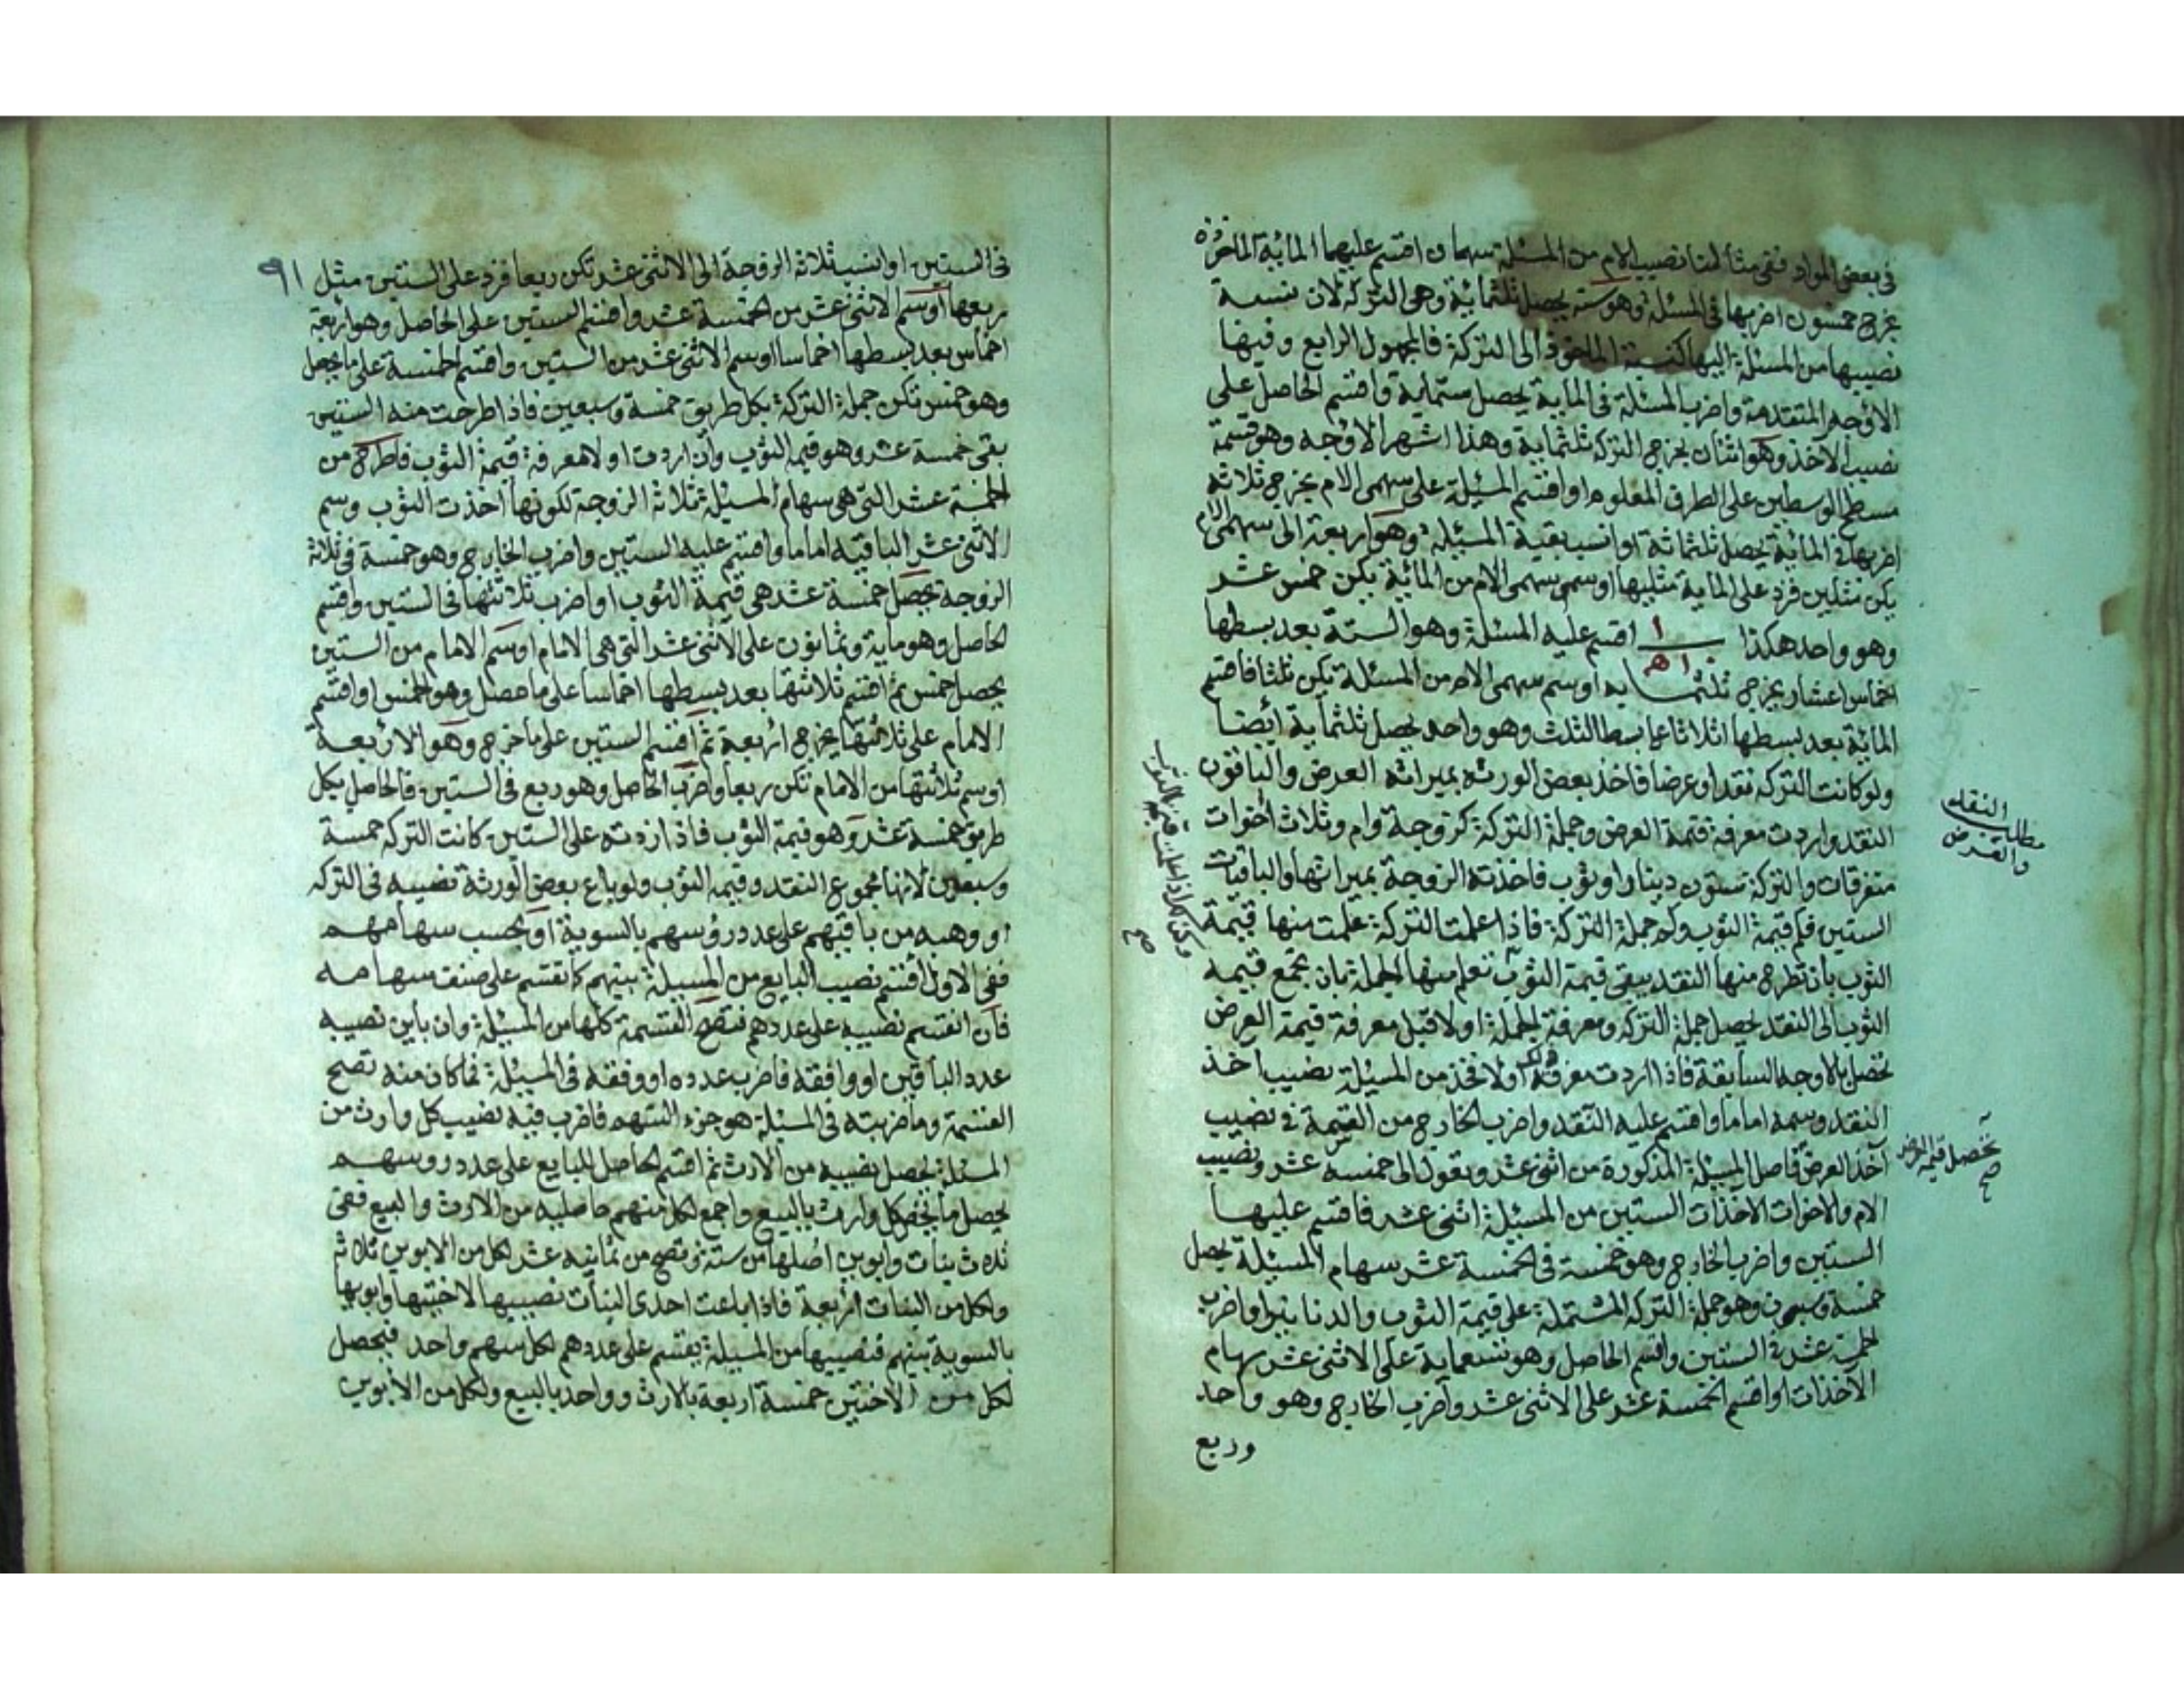 في بعض المواد ففي مثالنا نصيب الام من المسئلة سهمان اقسم عليهما المائة الماخوذة
يخرج خمسون اضربها في المسئلة وهو ستة يحصل ثلثمائة وهي التركة لان نسبة
نصيبها من المسئلة اليها كنسبة الماخوذ الى التركة فالمجهول الرابع وفيها
الاوجه المتقدمة واضرب المسئلة في الماية يحصل ستماية واقسم الحاصل على
نصيب الآخذ وهو اثنان يخرج التركة ثلثماية وهذا اشهر الاوجه وهو قسمة
مسطح الوسطين على الطرف المعلوم او اقسم المسئلة على سهمى الام يخرج ثلاثة
اضربها في المائة يحصل ثلثمائة او انسب بقية المسئلة وهو اربعة الى سهمى الام
يكن مثلين فزد على الماية مثليها او سمى سهمى الام من المائة يكن خمس عشر
وهو واحد هكذا ١ / ١٠ ٥ اقسم عليه المسئلة وهو الستة بعد بسطها
اخماس اعشار يخرج ثلثماية او سم سهمى الام من المسئلة تكن ثلثا فاقسم
المائة بعد بسطها اثلاثا على بسط الثلث وهو واحد يحصل ثلثماية ايضا
ولو كانت التركة نقدا وعرضا فاخذ بعض الورثة بميراثه العرض والباقون
النقد واردت معرفة قيمة العرض وجملة التركة كزوجة وام وثلاث اخوات
متفرقات والتركة ستون دينارا وثوب فاخذته الزوجة بميراثها والباقيات
الستين فكم قيمة الثوب وكم جملة التركة فاذا علمت التركة علمت منها قيمة
الثوب بان تطرح منها النقد يبقى قيمة الثوب تعلم منها الجملة بان تجمع قيمة
الثوب الى النقد يحصل جملة التركة ومعرفة الجملة اولا قبل معرفة قيمة العرض
تحصل بالاوجه السابقة فاذا اردت معرفة ذلك اولا فخذ من المسئلة نصيب اخذ
النقد وسمه اماما واقسم عليه النقد واضرب الخارج من القسمة في نصيب
آخذ العرض فاصل المسئلة المذكورة من اثنى عشر وتعول الى خمسة عشر ونصيب
الام والاخوات الاخذات الستين من المسئلة اثنى عشر فاقسم عليها
الستين واضرب الخارج وهو خمسة في الخمسة عشر سهام المسئلة يحصل
خمسة وسبعون وهو جملة التركة المشتملة على قيمة الثوب والدنانير او اضرب
الخمسة عشر في الستين واقسم الحاصل وهو تسعماية على الاثنى عشر سهام
الآخذات او اقسم الخمسة عشر على الاثنى عشر واضرب الخارج وهو واحد
وربع
مطلب النقد
والعرض
تحصل قيمة العرض
صح
٩١
في الستين او انسب ثلاثة الزوجة الى الاثنى عشر تكن ربعا فزد على الستين مثل
ربعها او سم الاثنى عشر من الخمسة عشر واقسم الستين على الحاصل وهو اربعة
اخماس بعد بسطها اخماسا او سم الاثنى عشر من الستين واقسم الخمسة على ما يحصل
وهو خمس تكن جملة التركة بكل طريق خمسة وسبعين فاذا طرحت منه الستين
بقى خمسة عشر وهو قيمة الثوب وان اردت اولا معرفة قيمة الثوب فاطرح من
الخمسة عشر التي هي سهام المسئلة ثلاثة الزوجة لكونها اخذت الثوب وسم
الاثنى عشر الباقية اماما واقسم عليه الستين واضرب الخارج وهو خمسة في ثلاثة
الزوجة يحصل خمسة عشر هي قيمة الثوب او اضرب ثلاثتها في الستين واقسم
الحاصل وهو ماية وثمانون على الاثنى عشر التي هي الامام او سم الامام من الستين
يحصل خمس ثم اقسم ثلاثتها بعد بسطها اخماسا على ما حصل وهو الخمس او اقسم
الامام على ثلاثتها يخرج اربعة ثم اقسم الستين على ما خرج وهو الاربعة
او سم ثلاثتها من الامام تكن ربعا واضرب الحاصل وهو ربع في الستين فالحاصل بكل
طريق خمسة عشر وهو قيمة الثوب فاذا زدته على الستين كانت التركة خمسة
وسبعون لانها مجموع النقد وقيمة الثوب ولو باع بعض الورثة نصيبه في التركة
او وهبه من باقيهم على عدد رؤسهم بالسوية او بحسب سهامهم
ففى الاول اقسم نصيب البايع من المسئلة بينهم كما تقسم على صنف سهامه
فان انقسم نصيبه على عددهم فتصح القسمة كلها من المسئلة وان باين نصيبه
عدد الباقين او وافقه فاضرب عدده او وفقه في المسئلة فما كان منه تصح
القسمة وما ضربته في المسئلة هو جزء السهم فاضرب فيه نصيب كل وارث من
المسئلة يحصل نصيبه من الارث ثم اقسم الحاصل للبايع على عدد روسهم
يحصل ما يخص كل وارث بالبيع واجمع لكل منهم حاصليه من الارث والبيع ففى
ثلاث بنات وابوين اصلها من ستة وتصح من ثمانية عشر لكل من الابوين ثلاثة
ولكل من البنات اربعة فاذا باعت احدى البنات نصيبها لاختيها وابويها
بالسوية بينهم فنصيبها من المسئلة يقسم على عددهم لكل سهم واحد فيحصل
لكل من الاختين خمسة اربعة بالارث وواحد بالبيع ولكل من الابوين